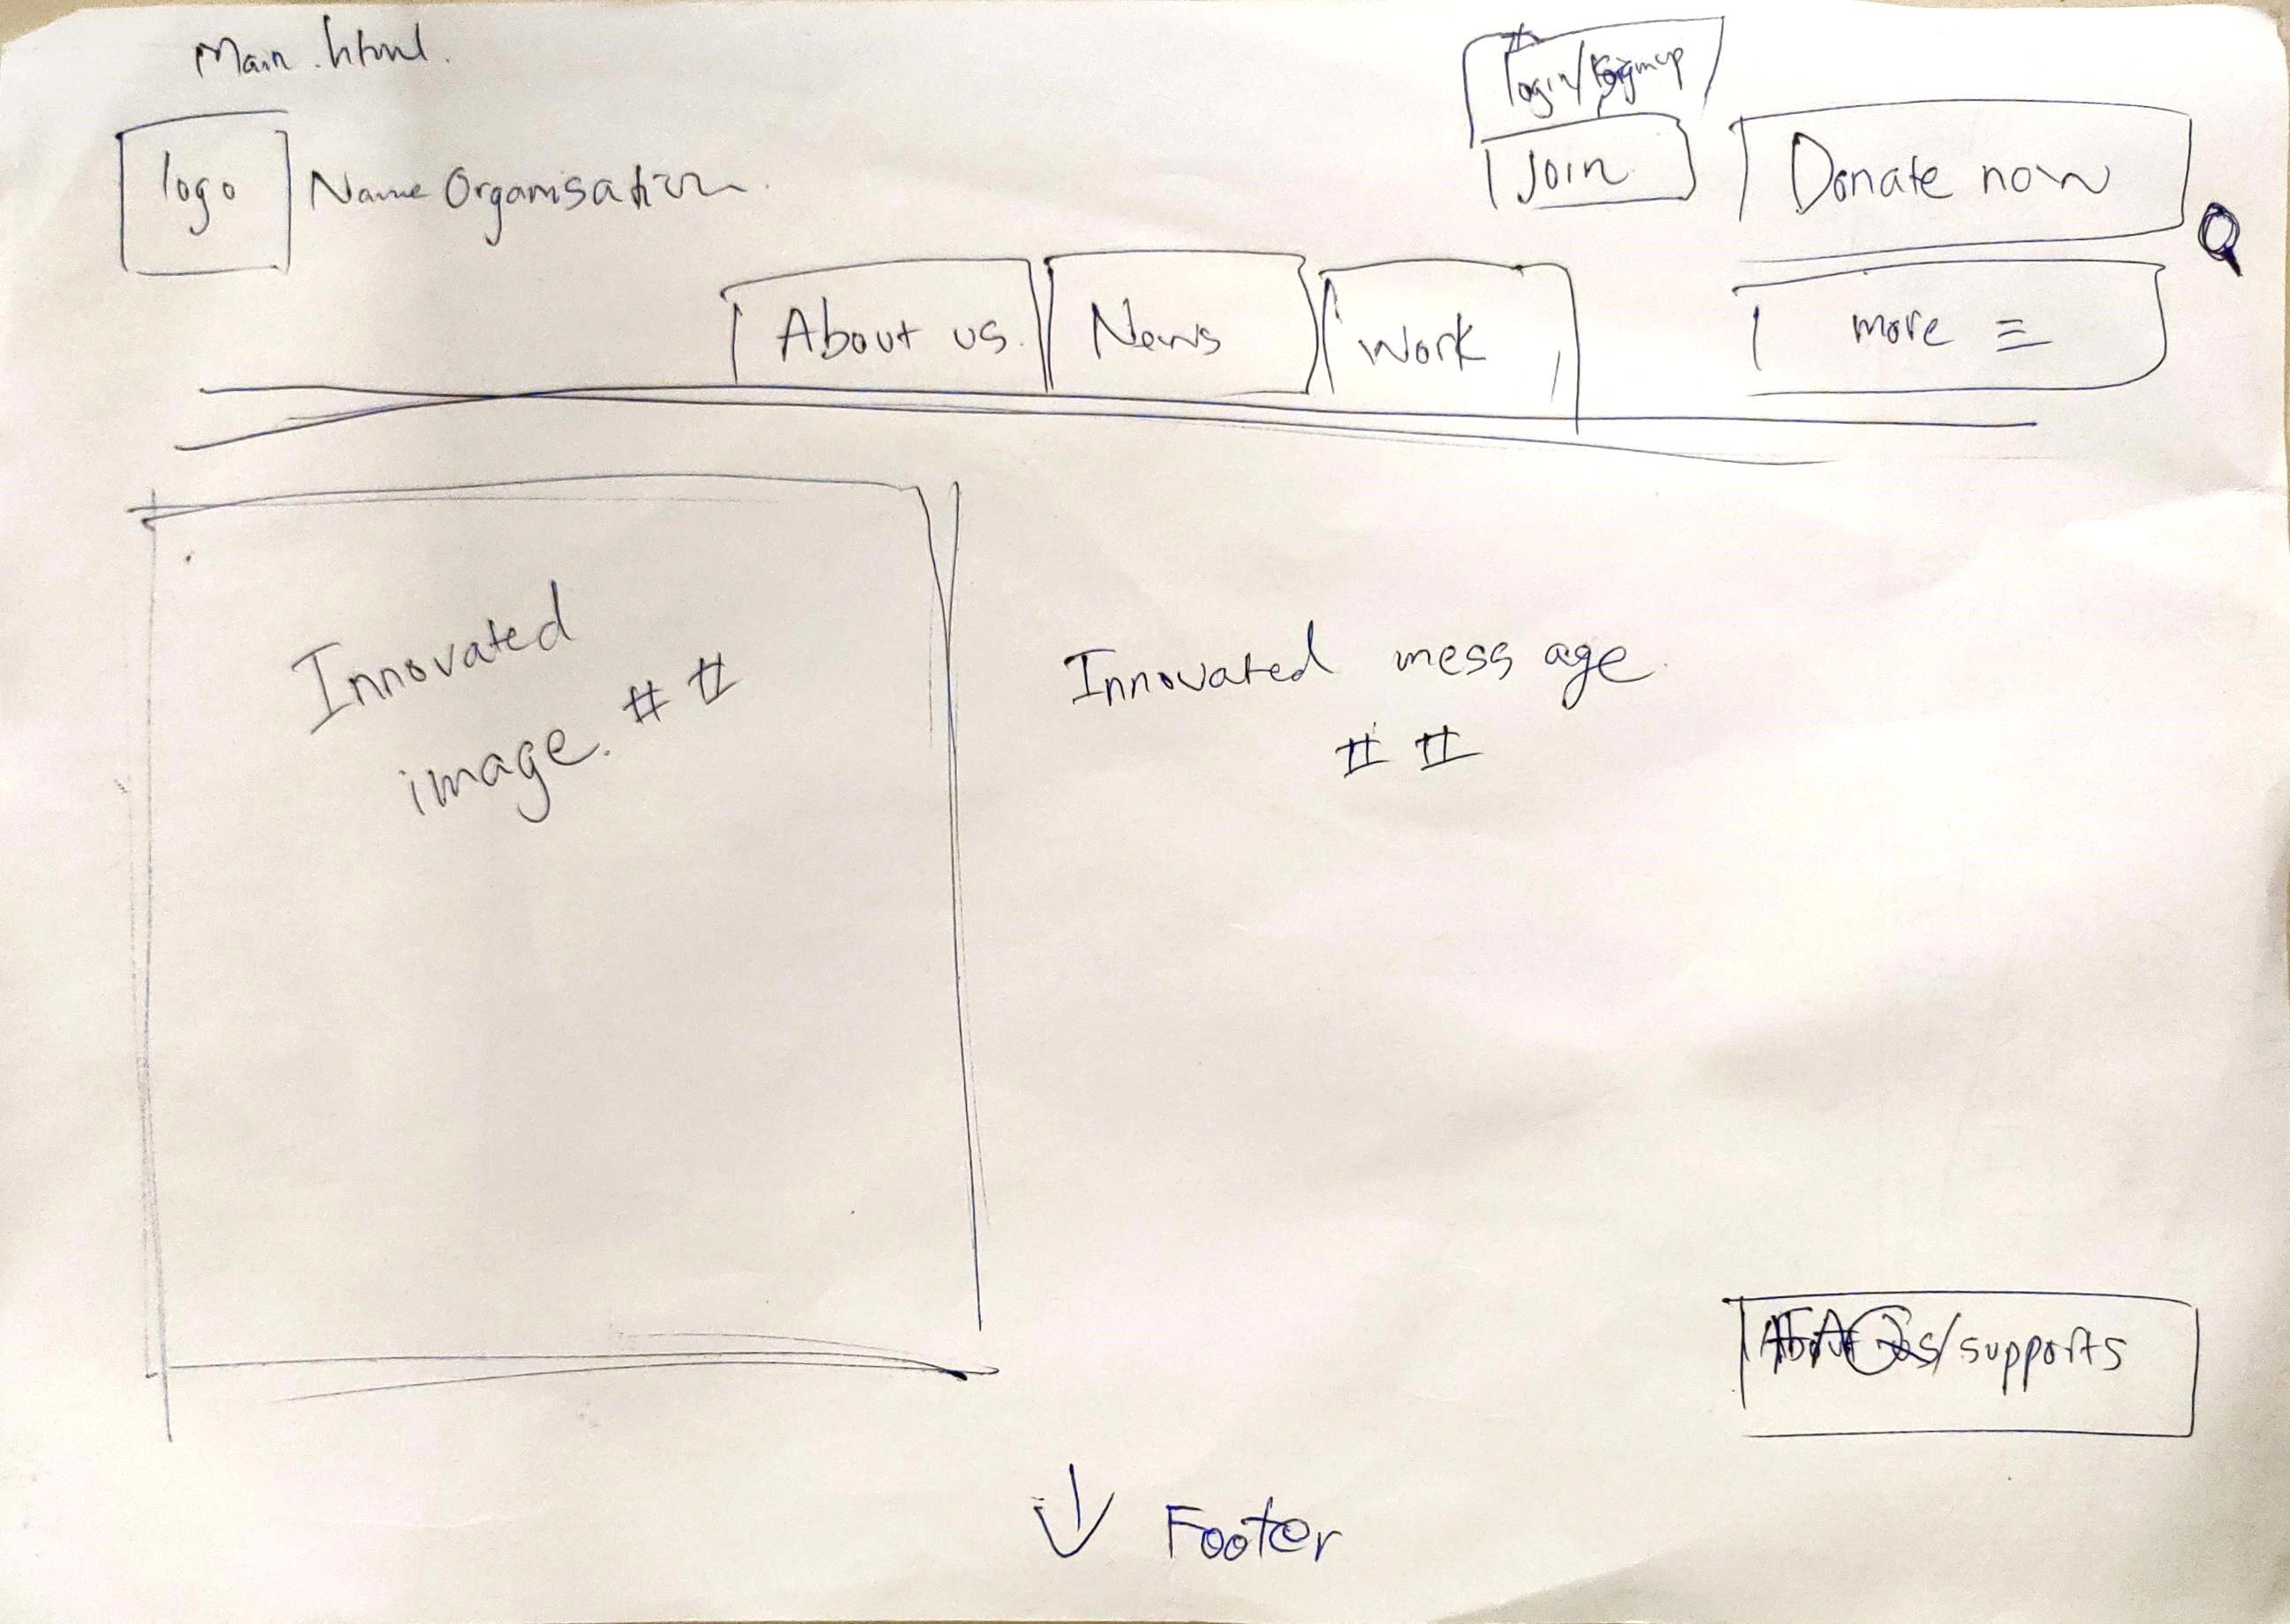 Main.html.
login/signup
logo
Name Organisation.
Join
Donate now
About us.
News
Work
more ≡
Innovated
image. # #
Innovated message.
# #
FAQs/supports
↓ Footer